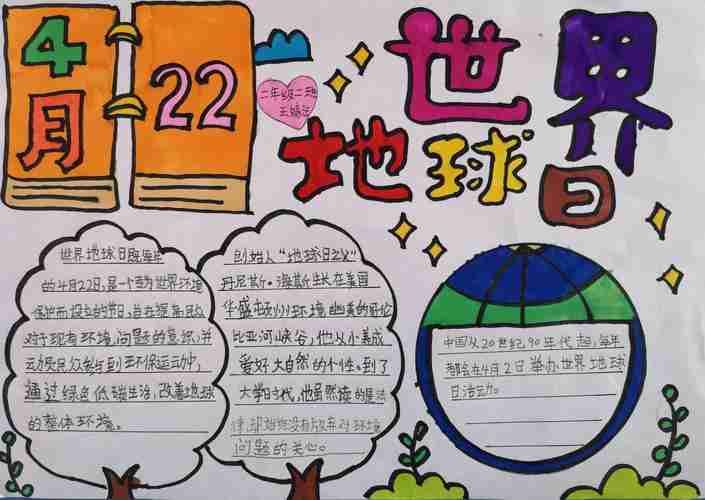 4月
22
二年级二班
世界
地球日
世界地球日既每年
的4月22日,是一个专为世界环境
保护而设立的节日,旨在提高民众
对于现有环境问题的意识,并
动员民众参与到环保运动中,
通过绿色低碳生活,改善地球
的整体环境。
创始人“地球日之父”
丹尼斯·海斯生长在美国
华盛顿州环境幽美的哥伦
比亚河峡谷,他从小养成
爱好大自然的个性。到了
大学时代,他虽然读的是法
律,却始终没有放弃对环境
问题的关心。
中国从20世纪90年代起,每年
都会在4月2日举办世界地球
日活动。